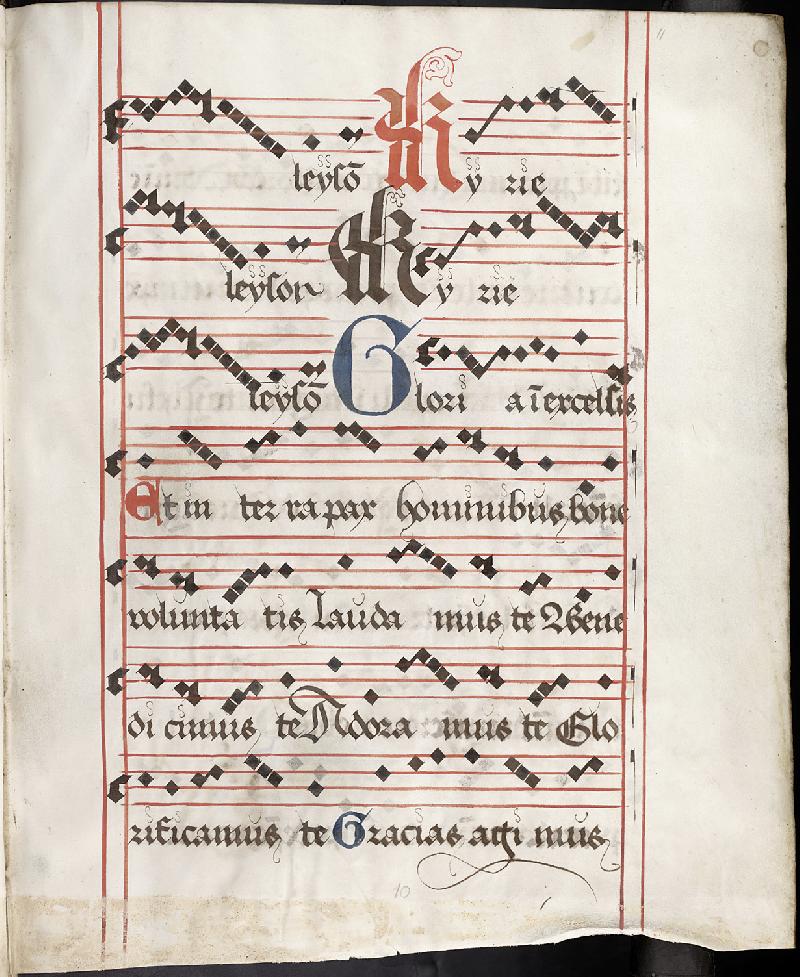 leysō Ky rie
leyson Ky rie
leysō Glori a ī excelsis
Et in ter ra pax hominibus bone
volunta tis Lauda mus te Bene
di cimus te Adora mus te Glo
rificamus te Gracias agi mus
10
11